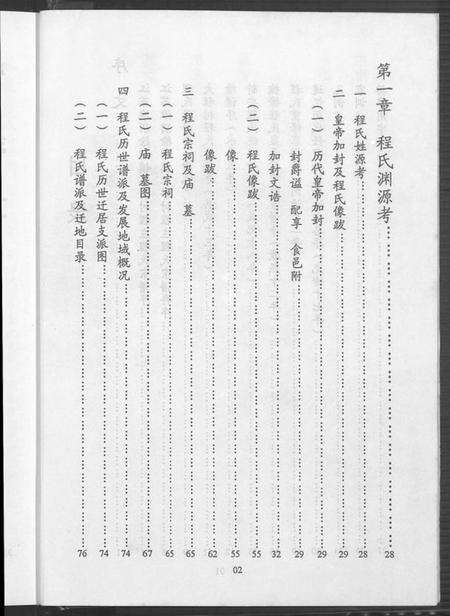 第一章 程氏渊源考……28
一 程氏姓源考……28
二 皇帝加封及程氏像跋……29
（一） 历代皇帝加封……29
封爵谥 配享 食邑附……29
加封文诰……32
（二） 程氏像跋……55
像……55
像跋……62
三 程氏宗祠及庙 墓……65
（一） 程氏宗祠……65
（二） 庙 墓图……67
四 程氏历世谱派及发展地域概况……74
（一） 程氏历世迁居支派图……74
（二） 程氏谱派及迁地目录……76
02